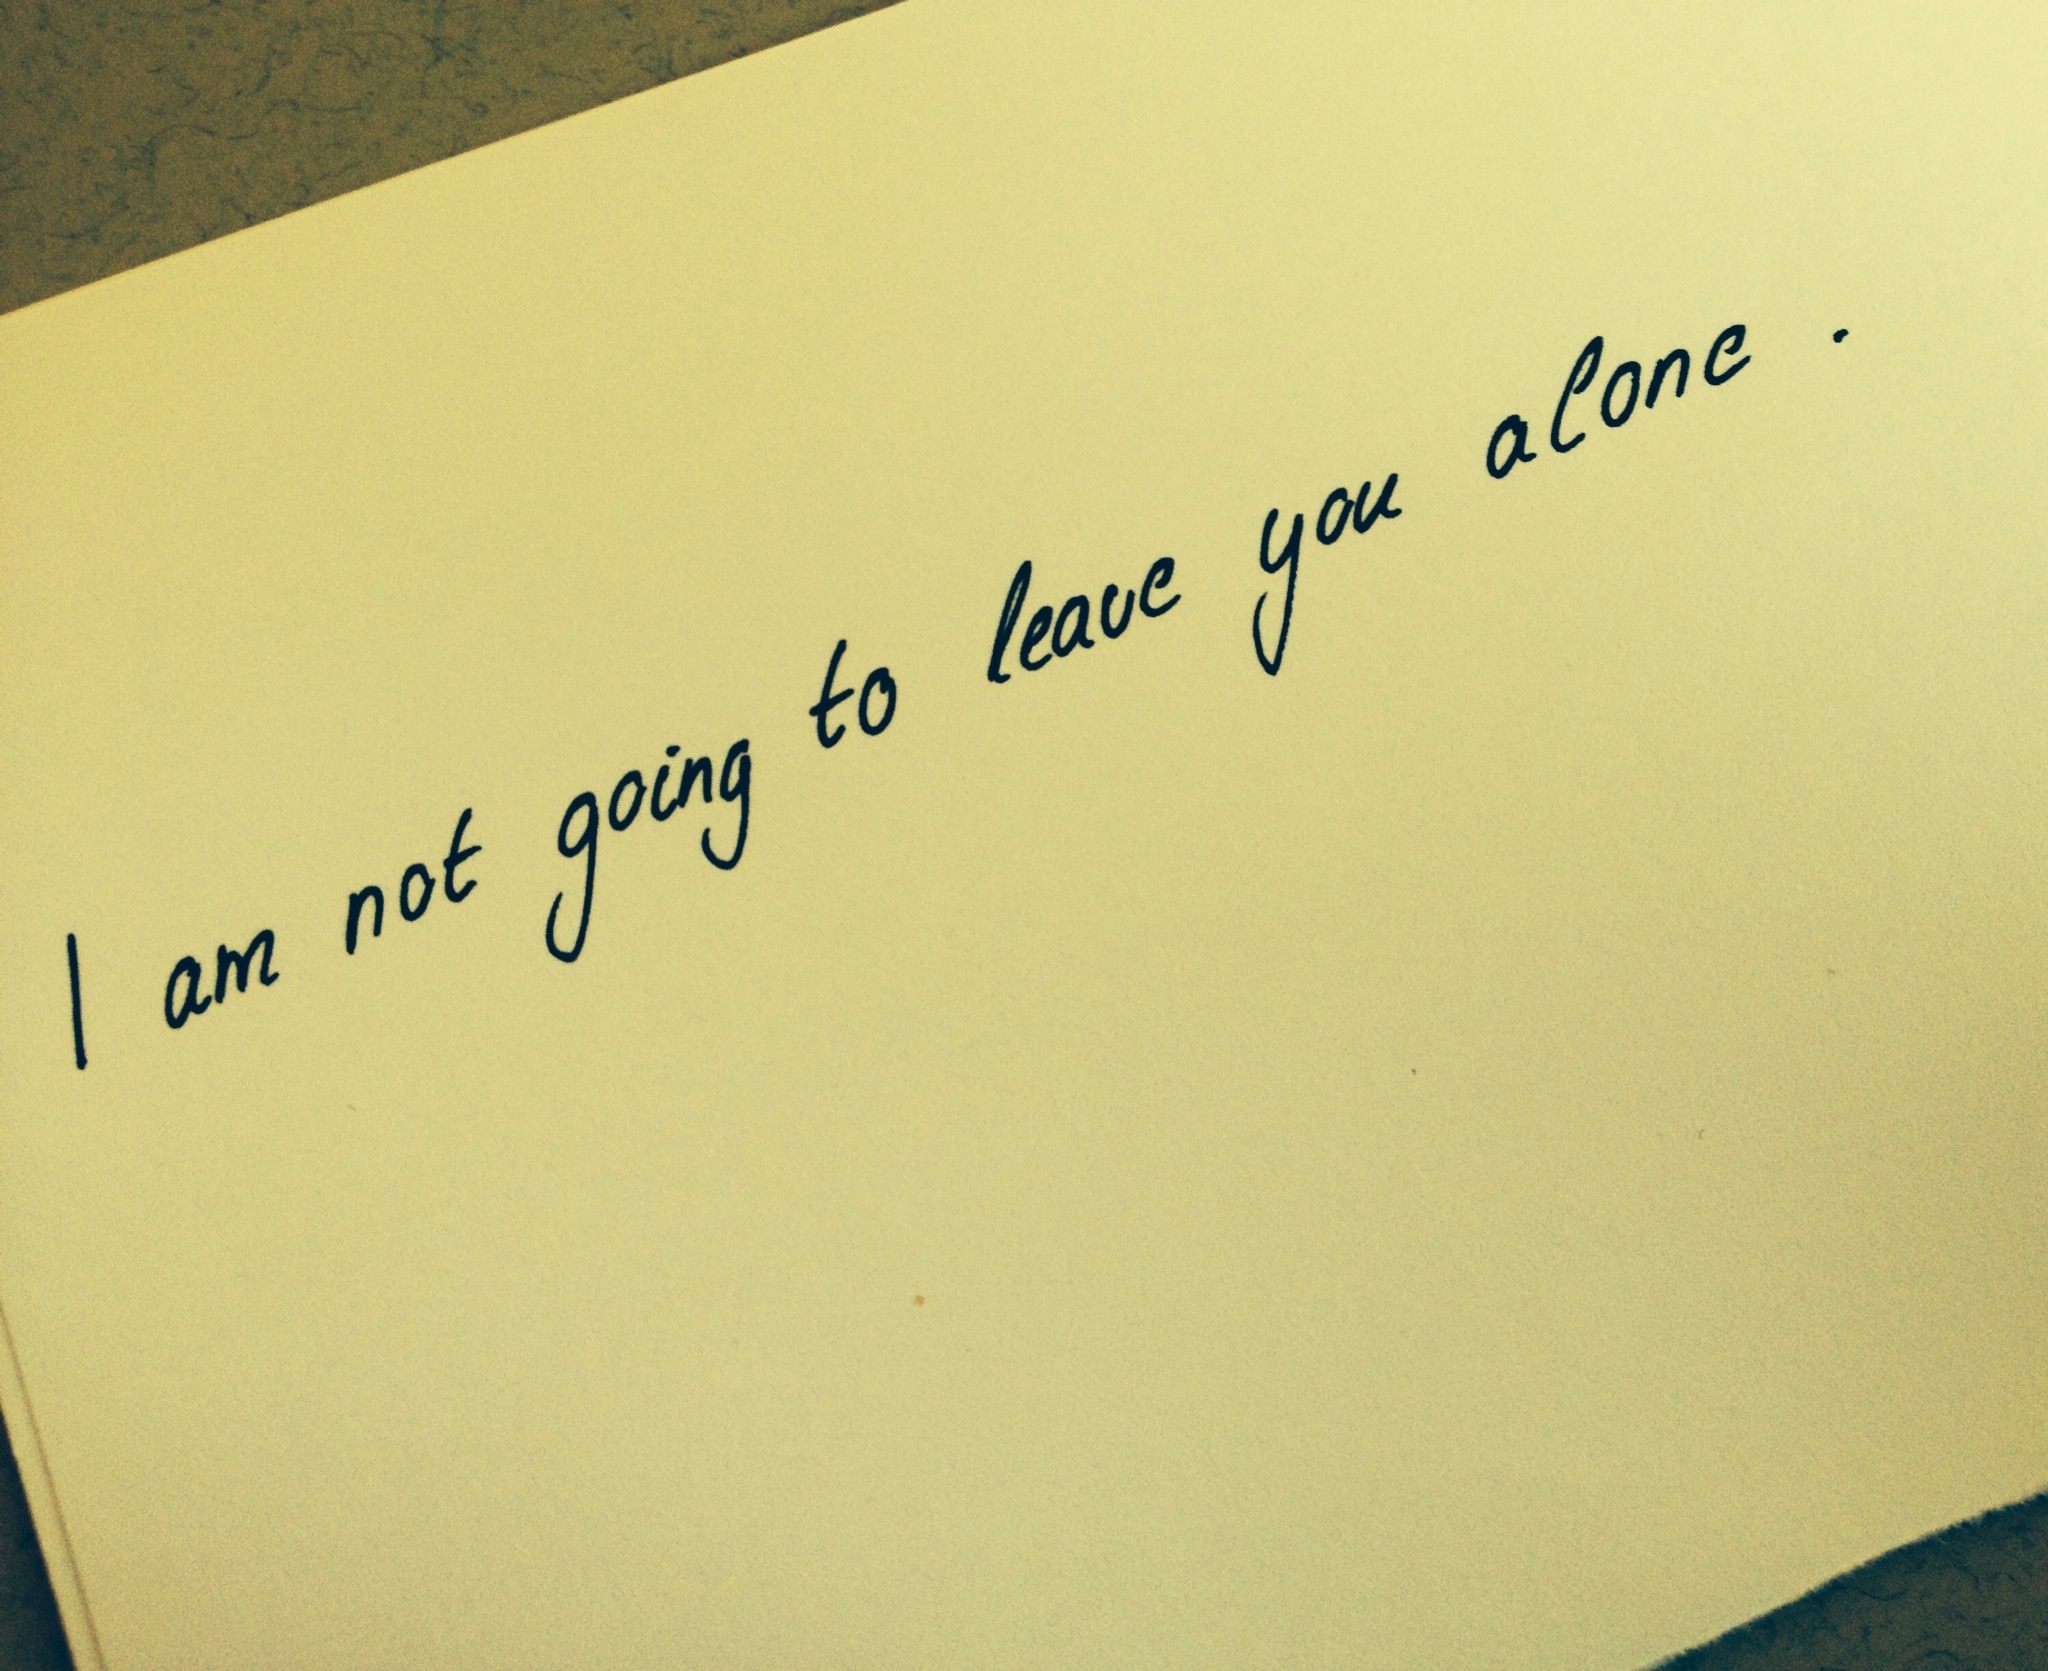 I am not going to leave you alone.